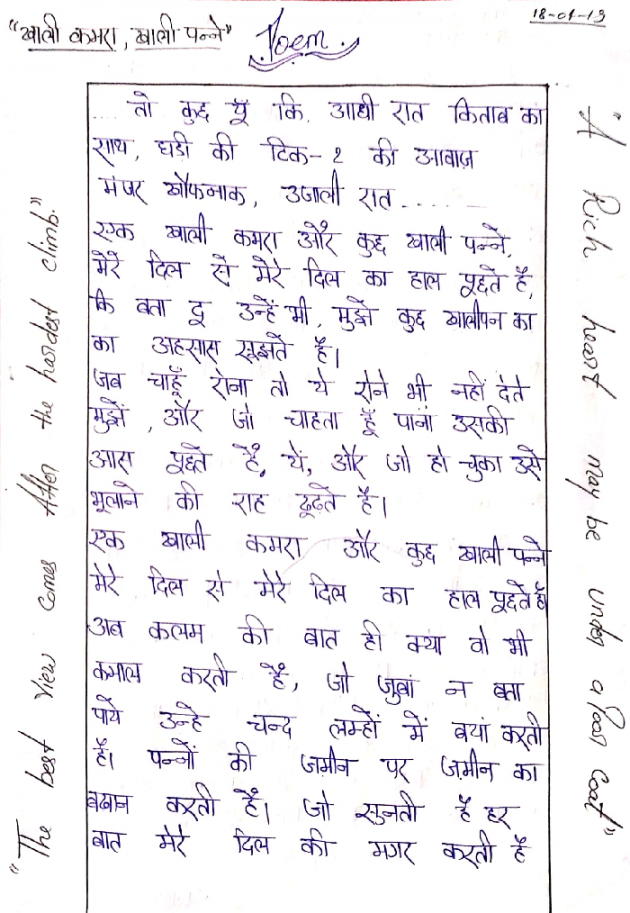 18-01-13
"खाली कमरा, खाली पन्ने"
Poem
.... तो कुछ यूँ कि, आधी रात किताब का
साथ, घडी की टिक-2 की आवाज
मंजर खौफनाक, उजाली रात.....
एक खाली कमरा और कुछ खाली पन्ने,
मेरे दिल से मेरे दिल का हाल पूछते है,
कि बता दू उन्हें भी, मुझे कुछ खालीपन का
का अहसास सूझते है।
जब चाहूँ रोना तो ये रोने भी नहीं देते
मुझें, और जो चाहता हूँ पाना उसकी
आस पूछते है, ये, और जो हो चुका उसे
भूलाने की राह ढूढते है।
एक खाली कमरा और कुछ खाली पन्ने
मेरे दिल से मेरे दिल का हाल पूछते है।
अब कलम की बात ही क्या वो भी
कमाल करती है, जो जुबां न बता
पाये उन्हे चन्द लम्हों में बयां करती
है। पन्नों की जमीन पर जमीन का
बखान करती है। जो सुनती है हर
बात मेरे दिल की मगर करती है
"The best view comes After the hardest climb."
"A Rich heart may be under a poor coat"